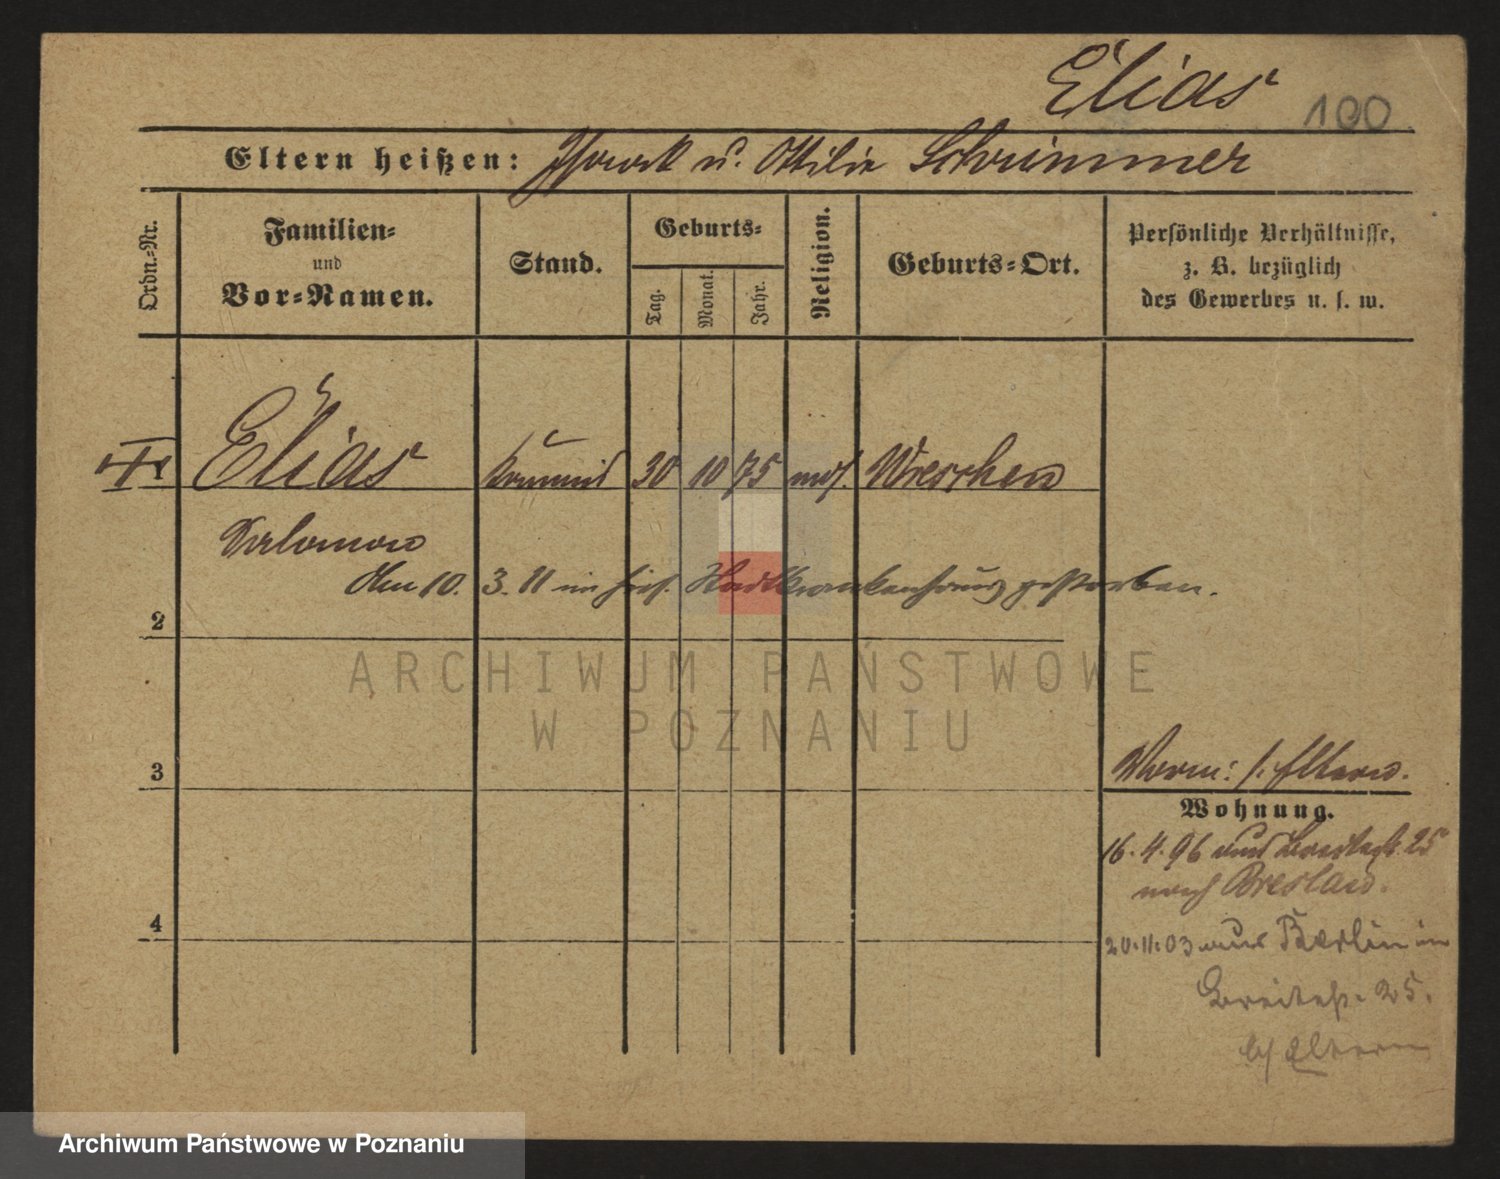 Elias
100
Eltern heißen: Isaak u. Ottilie Schrimmer
Ordn.-Nr.
Familien-
und
Vor-Namen.
Stand.
Geburts-
Tag.
Monat.
Jahr.
Religion.
Geburts-Ort.
Persönliche Verhältnisse,
z. B. bezüglich
des Gewerbes u. s. w.
Elias Kommis 30 10 75 mos. Wreschen
Salomon
Am 10. 3. 11 im hies. Stadtkrankenhaus gestorben.
2
3
4
Vorm: s. Eltern.
Wohnung.
16. 4. 96 aus Breitestr. 25
nach Breslau.
20.11.03 aus Berlin in
Breitestr. 25.
b/ Eltern
ARCHIWUM PAŃSTWOWE
W POZNANIU
Archiwum Państwowe w Poznaniu